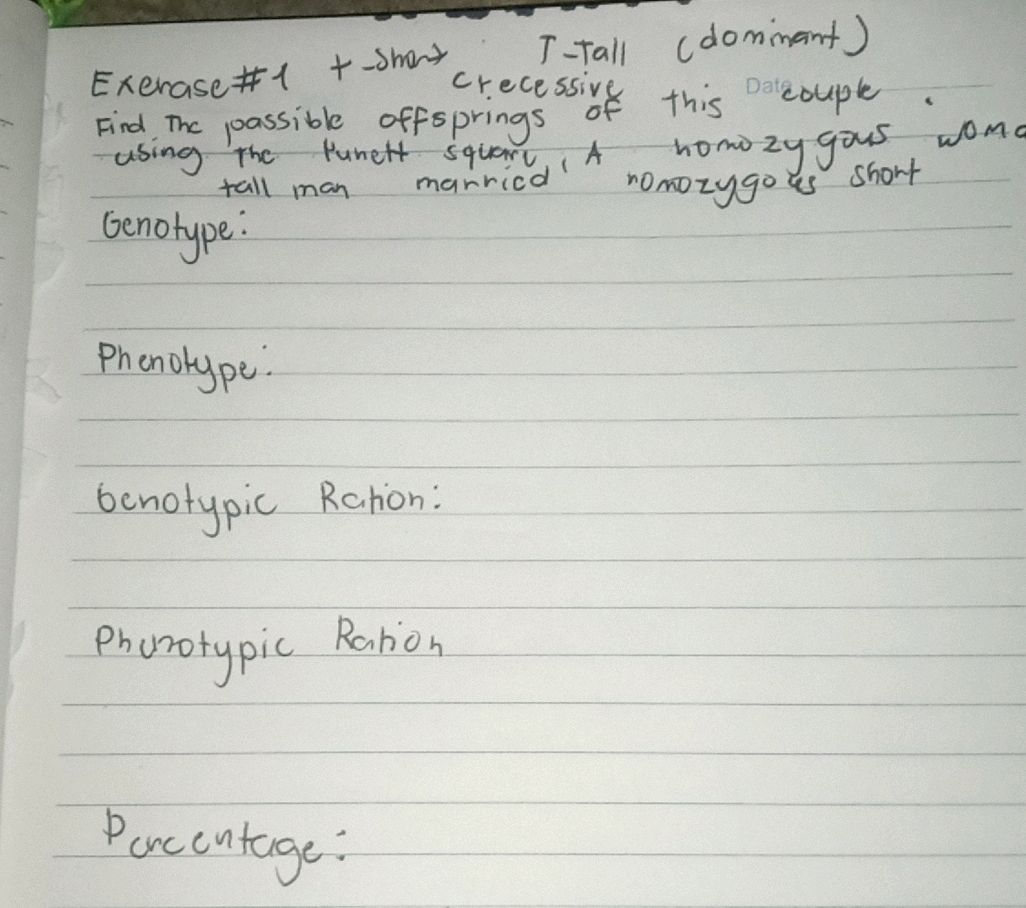 Exercise #1 t-short T-Tall (dominant)
crecessive
Find The possible offsprings of this couple.
Date
using The Punett square, A homozygous woma
tall man married homozygous short
Genotype:
Phenotype:
Genotypic Ration:
Phenotypic Ration
Percentage: